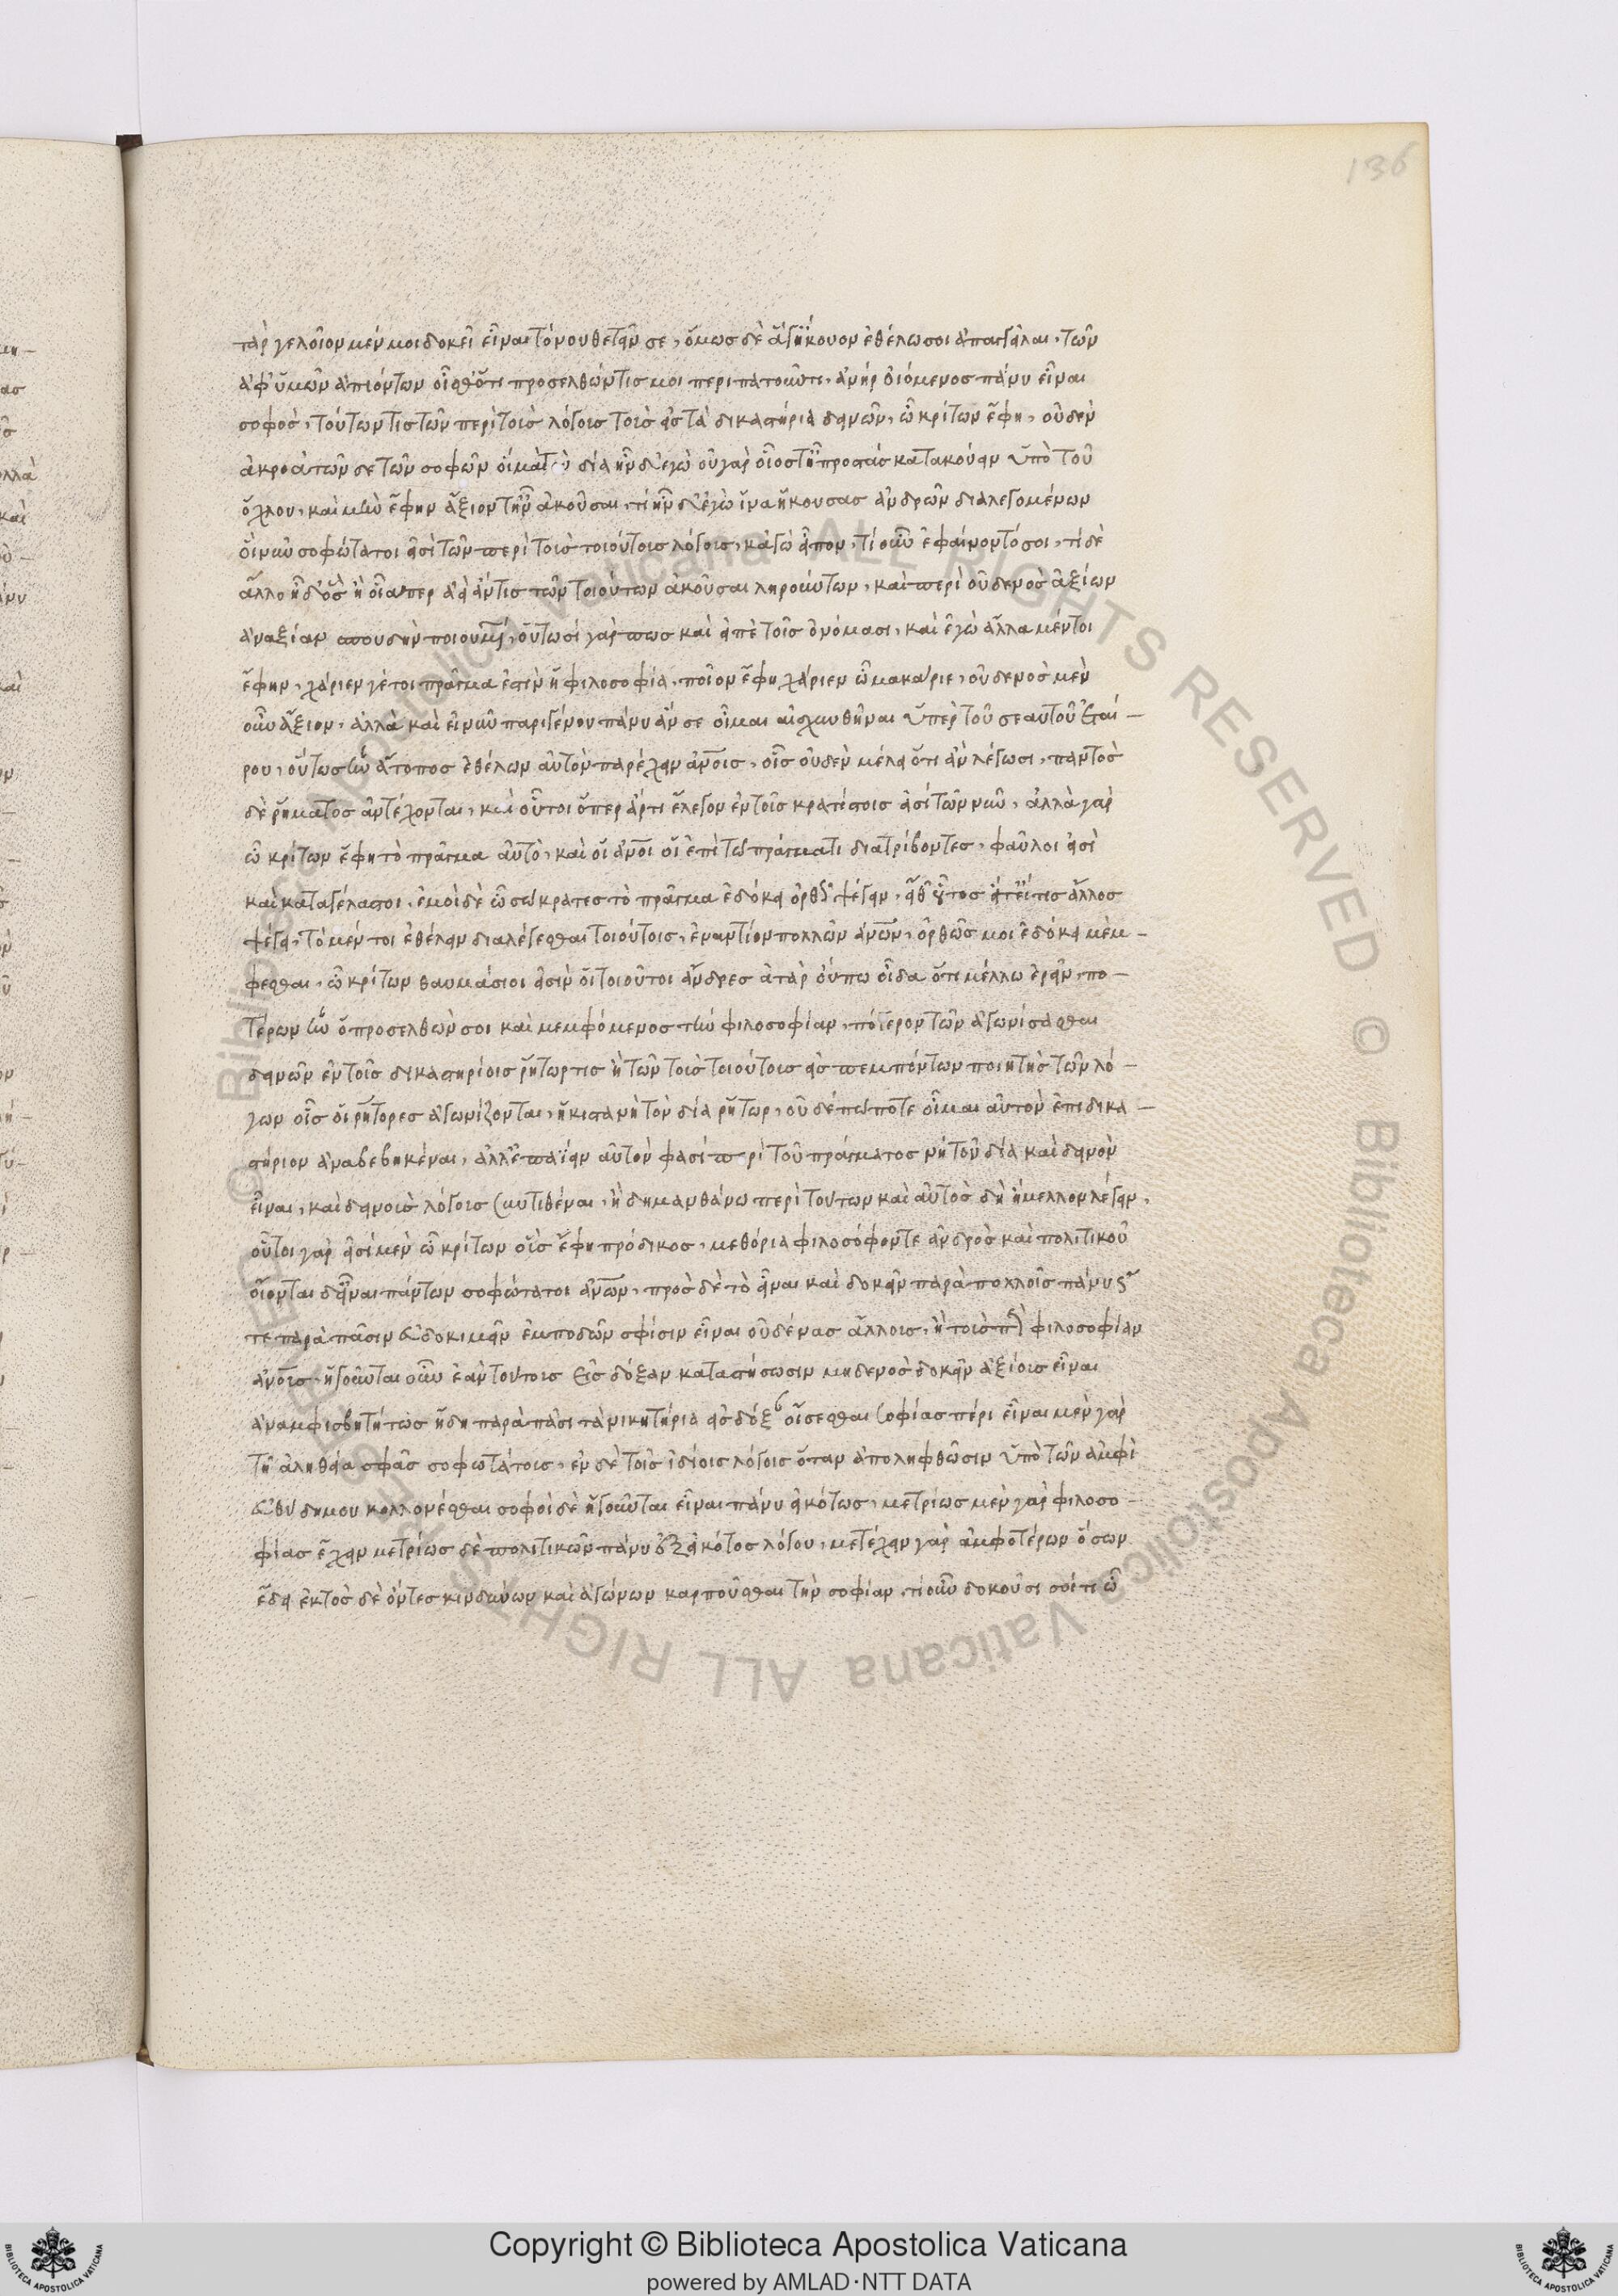 136
τὰρ γελοῖον μέν μοι δοκεῖ εἶναι τὸ νουθετεῖν σε, ὅμως δὲ ἅγ' ἤκουον ἐθέλω σοι ἀπαγγεῖλαι, τῶν
ἀφ' ὑμῶν ἀπιόντων οἶσθ' ὅτι προσελθών τίς μοι περιπατοῦντι, ἀνὴρ οἰόμενος πάνυ εἶναι
σοφὸς, τούτων τις τῶν περὶ τοὺς λόγους τοὺς εἰς τὰ δικαστήρια δεινῶν, ὦ κρίτων ἔφη, οὐδὲν
ἀκροᾶ τῶν δε τῶν σοφῶν οὐ μὰ τὸν δία ἦν δ' ἐγὼ οὐ γὰρ οἷός τ' ἦν προστὰς κατακούειν ὑπὸ τοῦ
ὄχλου, καὶ μὴν ἔφην ἄξιόν τ' ἦν ἀκοῦσαι, τί ἦν δ' ἐγὼ ἵνα ἤκουσας ἀνδρῶν διαλεγομένων
οἳ νῦν σοφώτατοι εἰσὶ τῶν περὶ τοὺς τοιούτους λόγους, κἀγὼ εἶπον, τί οὖν ἐφαίνοντό σοι, τί δὲ
ἄλλο ἦ δ' ὃς ἢ οἷά περ ἀεὶ ἄν τις τῶν τοιούτων ἀκούσαι ληρούντων, καὶ περὶ οὐδενὸς ἀξίων
ἀναξίαν σπουδὴν ποιουμένων, οὑτωσὶ γάρ πως καὶ εἶπε τοῖς ὀνόμασι, καὶ ἐγὼ ἀλλὰ μέντοι
ἔφην, χάριέν γέ τοι πρᾶγμα ἐστὶν ἡ φιλοσοφία, ποῖον ἔφη χάριεν ὦ μακάριε, οὐδενὸς μὲν
οὖν ἄξιον, ἀλλὰ καὶ εἰ νῦν παρεγένου πάνυ ἄν σε οἶμαι αἰσχυνθῆναι ὑπὲρ τοῦ σεαυτοῦ ἑταί-
ρου, οὕτως ἦν ἄτοπος ἐθέλων αὑτὸν παρέχειν ἀνοις, οἷς οὐδὲν μέλει ὅτι ἂν λέγωσι, παντὸς
δὲ ῥήματος ἀντέχονται, καὶ οὗτοι ὅπερ ἄρτι ἔλεγον ἐν τοῖς κρατίστοις εἰσὶ τῶν νῦν, ἀλλὰ γὰρ
ὦ κρίτων ἔφη τὸ πρᾶγμα αὐτὸ, καὶ οἱ ἄνοι οἱ ἐπὶ τῶ πράγματι διατρίβοντες, φαῦλοι εἰσὶ
καὶ καταγέλαστοι, ἐμοὶ δὲ ὦ σώκρατες τὸ πρᾶγμα ἐδόκει οὐκ ὀρθῶς ψέγειν, εἴθ' οὗτος εἴτ' εἴ τις ἄλλος
ψέγει, τὸ μέν τοι ἐθέλειν διαλέγεσθαι τοιούτοις, ἐναντίον πολλῶν ἀνων, ὀρθῶς μοι ἐδόκει μέμ-
φεσθαι, ὦ κρίτων θαυμάσιοι εἰσὶν οἱ τοιοῦτοι ἄνδρες ἀτὰρ οὔπω οἶδα ὅτι μέλλω ἐρεῖν, πο-
τέρων ἦν ὁ προσελθὼν σοι καὶ μεμφόμενος τὴν φιλοσοφίαν, πότερον τῶν ἀγωνίσασθαι
δεινῶν ἐν τοῖς δικαστηρίοις ῥήτωρ τις ἢ τῶν τοὺς τοιούτους εἰσπεμπόντων ποιητὴς τῶν λό-
γων οἷς οἱ ῥήτορες ἀγωνίζονται, ἥκιστα νὴ τὸν δία ῥήτωρ, οὐδὲ πώποτε οἶμαι αὐτὸν ἐπὶ δικα-
στήριον ἀναβεβηκέναι, ἀλλ' ἐπαΐειν αὐτὸν φασὶ περὶ τοῦ πράγματος νὴ τὸν δία καὶ δεινὸν
εἶναι, καὶ δεινοὺς λόγους συντιθέναι, ἤδη μανθάνω περὶ τούτων καὶ αὐτὸς δὴ ἤμελλον λέγειν,
οὗτοι γὰρ εἰσὶ μὲν ὦ κρίτων οἷς ἔφη πρόδικος, μεθόρια φιλοσόφου τε ἀνδρὸς καὶ πολιτικοῦ
οἴονται δ' εἶναι πάντων σοφώτατοι ἀνων, πρὸς δὲ τὸ εἶναι καὶ δοκεῖν παρὰ πολλοῖς πάνυ ὥσ
τε παρὰ πᾶσιν εὐδοκιμεῖν ἐμποδὼν σφίσιν εἶναι οὐδένας ἄλλους, ἢ τοὺς περὶ φιλοσοφίαν
ἀνους, ἡγοῦνται οὖν ἐὰν τούτους εἰς δόξαν καταστήσωσιν μηδενὸς δοκεῖν ἀξίους εἶναι
ἀναμφισβητήτως ἤδη παρὰ πᾶσι τὰ νικητήρια εἰς δόξαν οἴσεσθαι σοφίας πέρι εἶναι μὲν γὰρ
τῆ ἀληθεία σφᾶς σοφωτάτους, ἐν δὲ τοῖς ἰδίοις λόγοις ὅταν ἀποληφθῶσιν ὑπὸ τῶν ἀμφὶ
εὐθύδημον κολλούεσθαι σοφοὶ δὲ ἡγοῦνται εἶναι πάνυ εἰκότως, μετρίως μὲν γὰρ φιλοσο-
φίας ἔχειν μετρίως δὲ πολιτικῶν πάνυ ἐξ εἰκότος λόγου, μετέχειν γὰρ ἀμφοτέρων ὅσων
ἔδει ἐκτὸς δὲ ὄντες κινδύνων καὶ ἀγώνων καρποῦσθαι τὴν σοφίαν, τί οὖν δοκοῦσι σοί τι ὦ
Copyright © Biblioteca Apostolica Vaticana
powered by AMLAD·NTT DATA
© Biblioteca Apostolica Vaticana ALL RIGHTS RESERVED